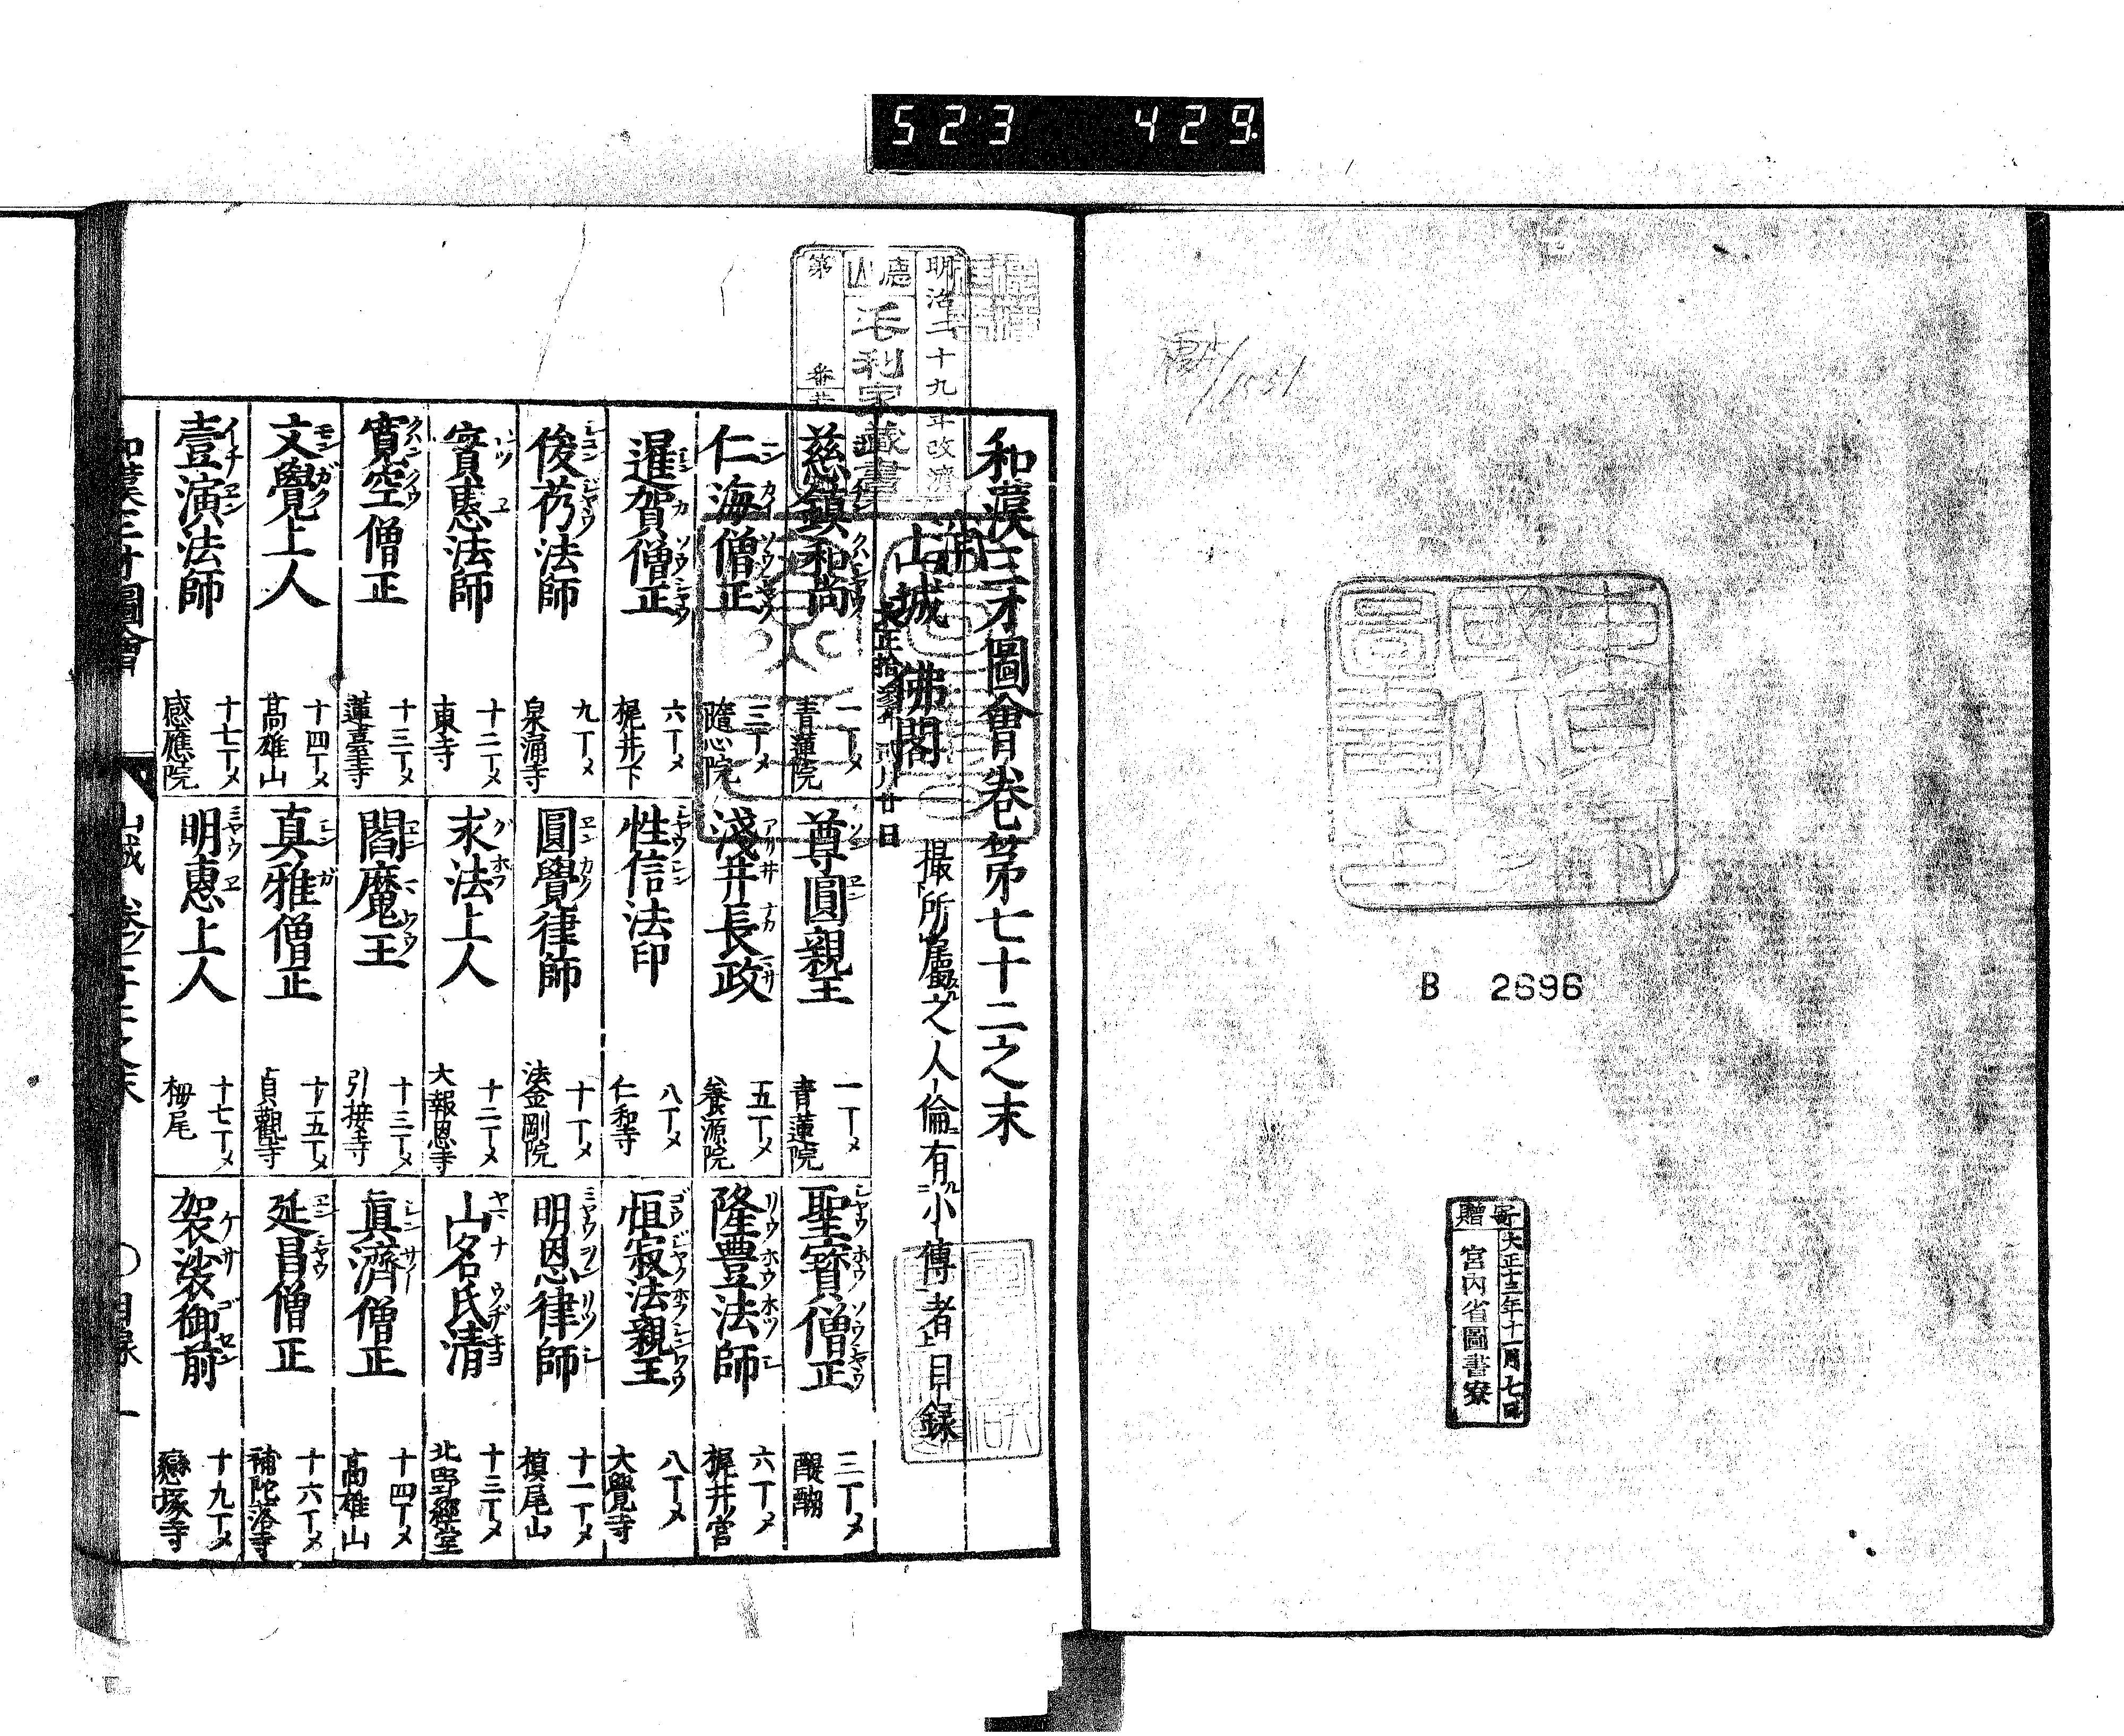 523 429
B 2696
寄贈
大正十三年十一月七日
宮内省圖書寮
明治二十九年改濟
德山
毛利家藏書
第 番
和漢三才圖會卷第七十二之末
山城 佛閣 撮所屬之人倫有小傳者目錄
慈鎮和尚 一丁メ 青蓮院
尊圓親王 一丁メ 青蓮院
聖寳僧正 三丁メ 醍醐
仁海僧正 三丁メ 隨心院
淺井長政 五丁メ 養源院
隆豊法師 六丁メ 梶井宮
暹賀僧正 六丁メ 梶井下
性信法印 八丁メ 仁和寺
恒寂法親王 八丁メ 大覺寺
俊芿法師 九丁メ 泉涌寺
圓覺律師 十一丁メ 法金剛院
明恩律師 十一丁メ 槙尾山
實惠法師 十二丁メ 東寺
求法上人 十二丁メ 大報恩寺
山名氏清 十三丁メ 北野經堂
寛空僧正 十三丁メ 蓮臺寺
閻魔王 十三丁メ 引接寺
眞濟僧正 十四丁メ 髙雄山
文覺上人 十四丁メ 髙雄山
真雅僧正 十五丁メ 貞觀寺
延昌僧正 十六丁メ 補陀落寺
壹演法師 十七丁メ 感應院
明惠上人 十七丁メ 栂尾
袈裟御前 十九丁メ 戀塚寺
和漢三才圖會 山城 卷ノ七十二之末 〇目録 一